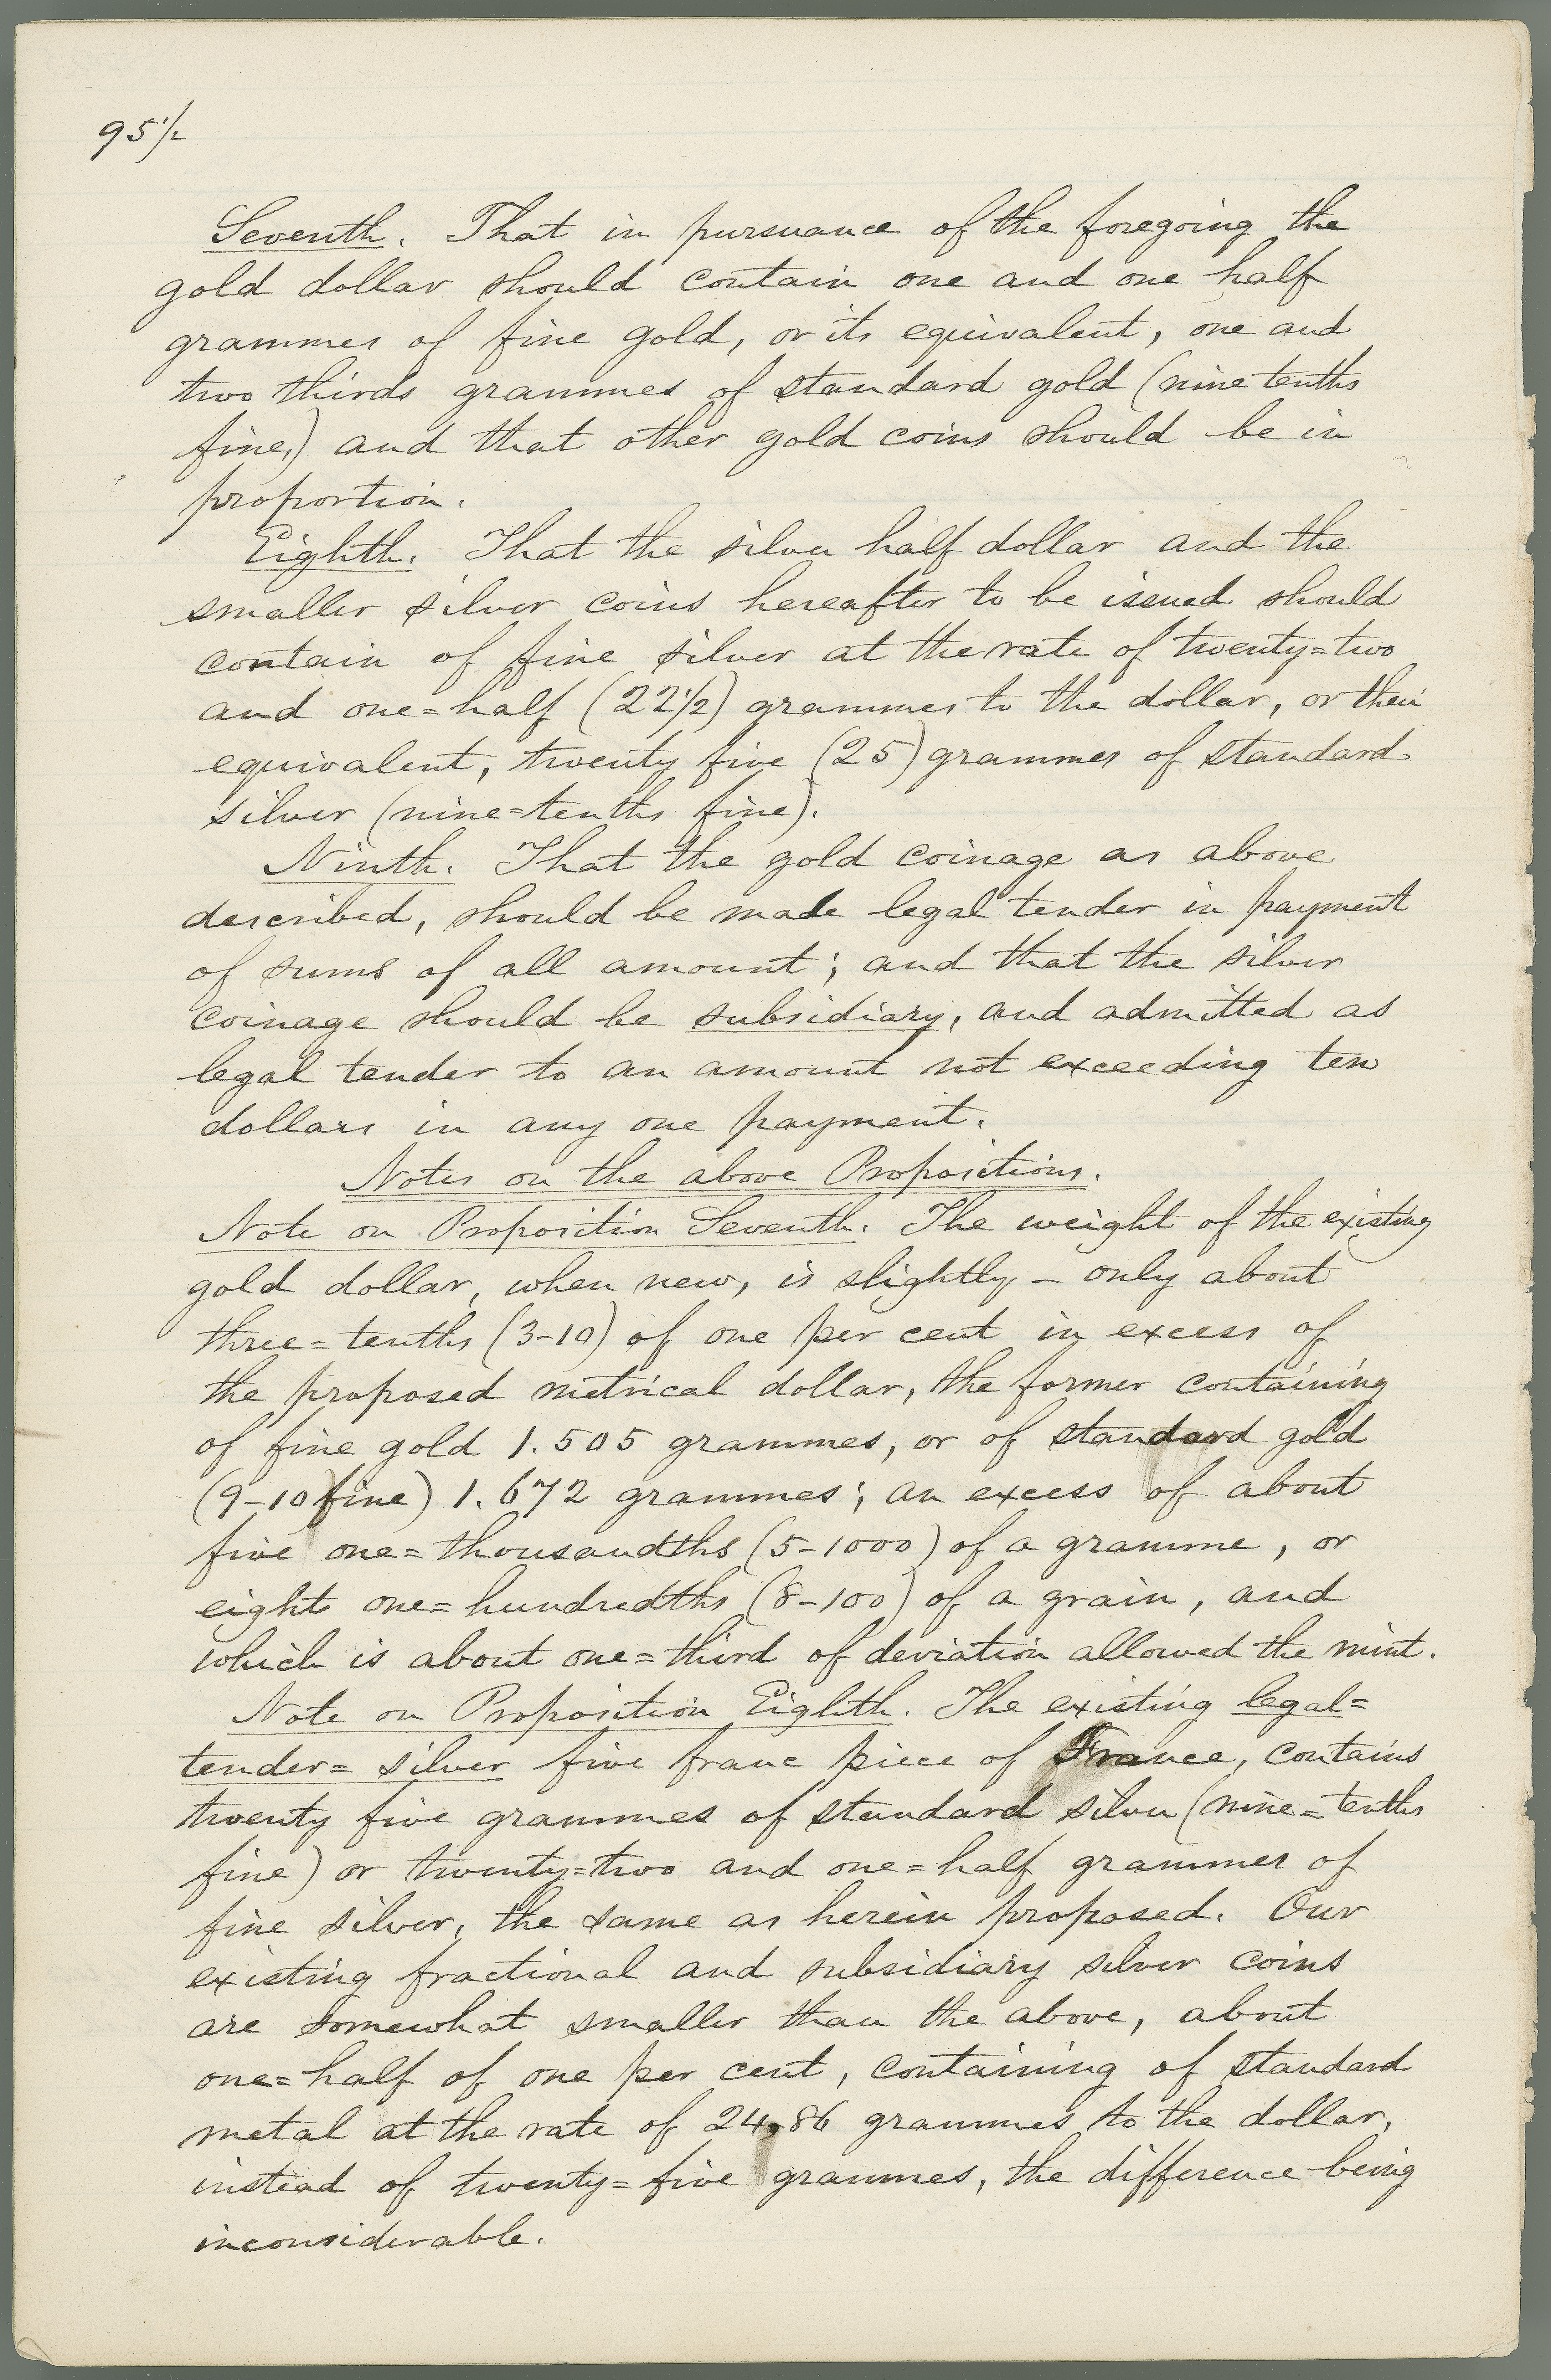 95 1/2
Seventh. That in pursuance of the foregoing the
gold dollar should contain one and one half
grammes of fine gold, or its equivalent, one and
two thirds grammes of standard gold (nine tenths
fine,) and that other gold coins should be in
proportion.
Eighth. That the silver half dollar and the
smaller silver coins hereafter to be issued should
contain of fine silver at the rate of twenty=two
and one=half (22 1/2) grammes to the dollar, or their
equivalent, twenty five (25) grammes of standard
silver (nine=tenths fine).
Ninth. That the gold coinage as above
described, should be made legal tender in payment
of sums of all amount; and that the silver
coinage should be subsidiary, and admitted as
legal tender to an amount not exceeding ten
dollars in any one payment.
Notes on the above Propositions.
Note on Proposition Seventh. The weight of the existing
gold dollar, when new, is slightly – only about
three=tenths (3-10) of one per cent in excess of
the proposed metrical dollar, the former containing
of fine gold 1.505 grammes, or of standard gold
(9-10 fine) 1.672 grammes; an excess of about
five one=thousandths (5-1000) of a gramme, or
eight one=hundredths (8-100) of a grain, and
which is about one=third of deviation allowed the mint.
Note on Proposition Eighth. The existing legal=
tender= silver five franc piece of France, contains
twenty five grammes of standard silver (nine=tenths
fine) or twenty=two and one=half grammes of
fine silver, the same as herein proposed. Our
existing fractional and subsidiary silver coins
are somewhat smaller than the above, about
one=half of one per cent, containing of standard
metal at the rate of 24.86 grammes to the dollar,
instead of twenty=five grammes, the difference being
inconsiderable.